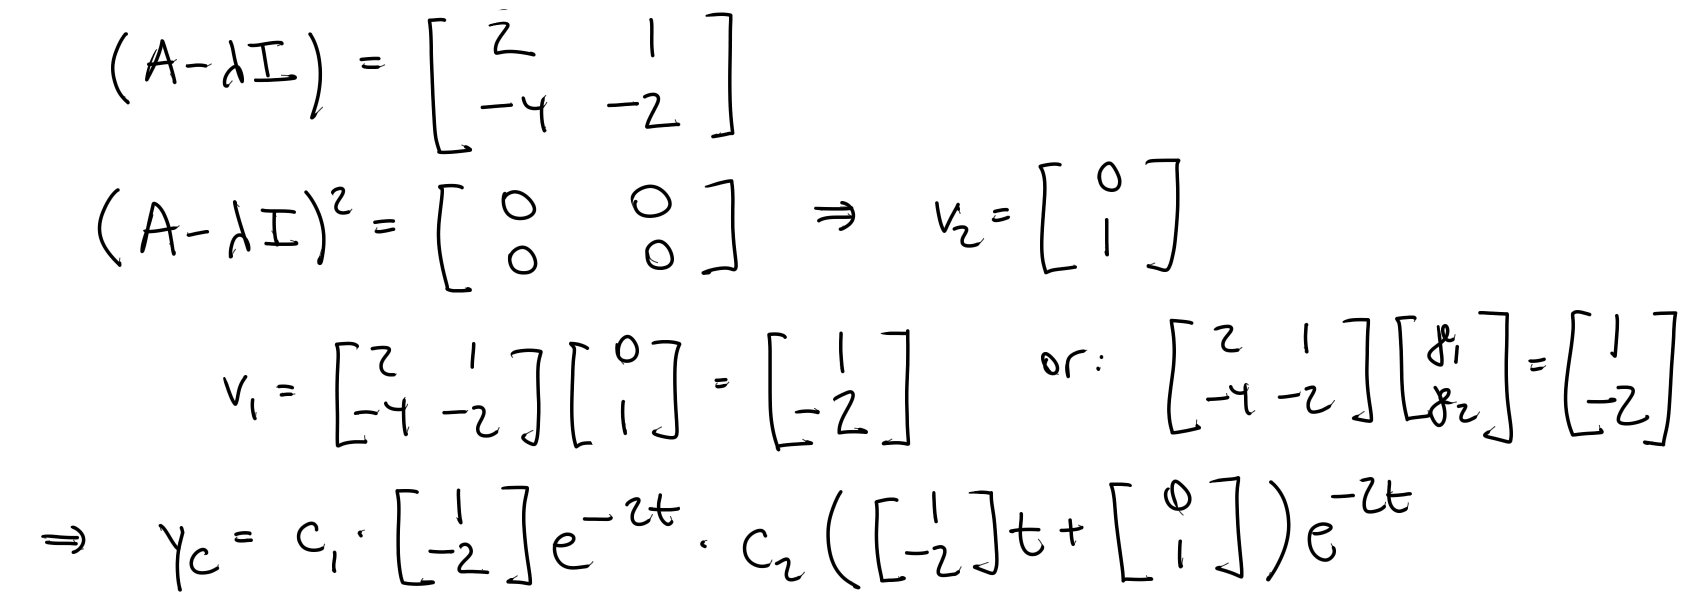 (A-λI) = [2 1; -4 -2]
(A-λI)² = [0 0; 0 0] ⇒ v₂ = [0; 1]
v₁ = [2 1; -4 -2] [0; 1] = [1; -2] or: [2 1; -4 -2] [g₁; g₂] = [1; -2]
⇒ y_c = c₁ · [1; -2] e^{-2t} · c₂ ([1; -2] t + [0; 1]) e^{-2t}